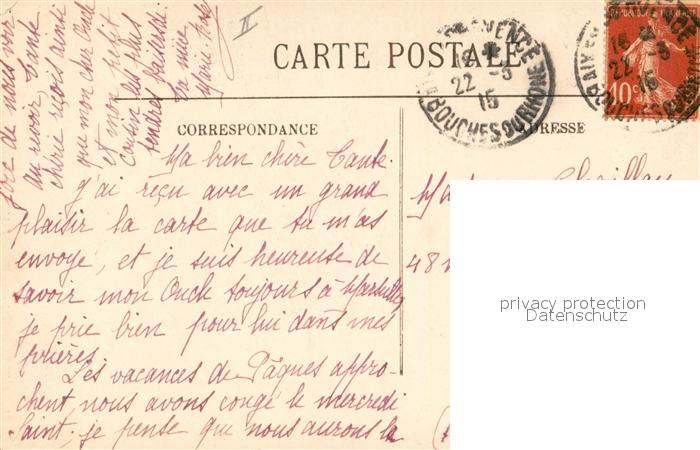 CARTE POSTALE
CORRESPONDANCE
ADRESSE
Ma bien chère Tante.
J'ai reçu avec un grand
plaisir la carte que tu m'as
envoyé, et je suis heureuse de
savoir mon Oncle toujours à Marseille,
je prie bien pour lui dans mes
prières.
Les vacances de Pâques appro-
chent, nous avons congé le mercredi
Saint; je pense que nous aurons la
joie de vous voir.
au revoir, Tante
chérie reçois ainsi
que mon cher Oncle
et mon petit
cousin les plus
tendres baisers
Ta nièce
II
PROVENCE
22 -3
15
BOUCHES DU RHONE
AIX EN PROVENCE
22 -3
15
BOUCHES DU RHONE
10c
48
privacy protection
Datenschutz